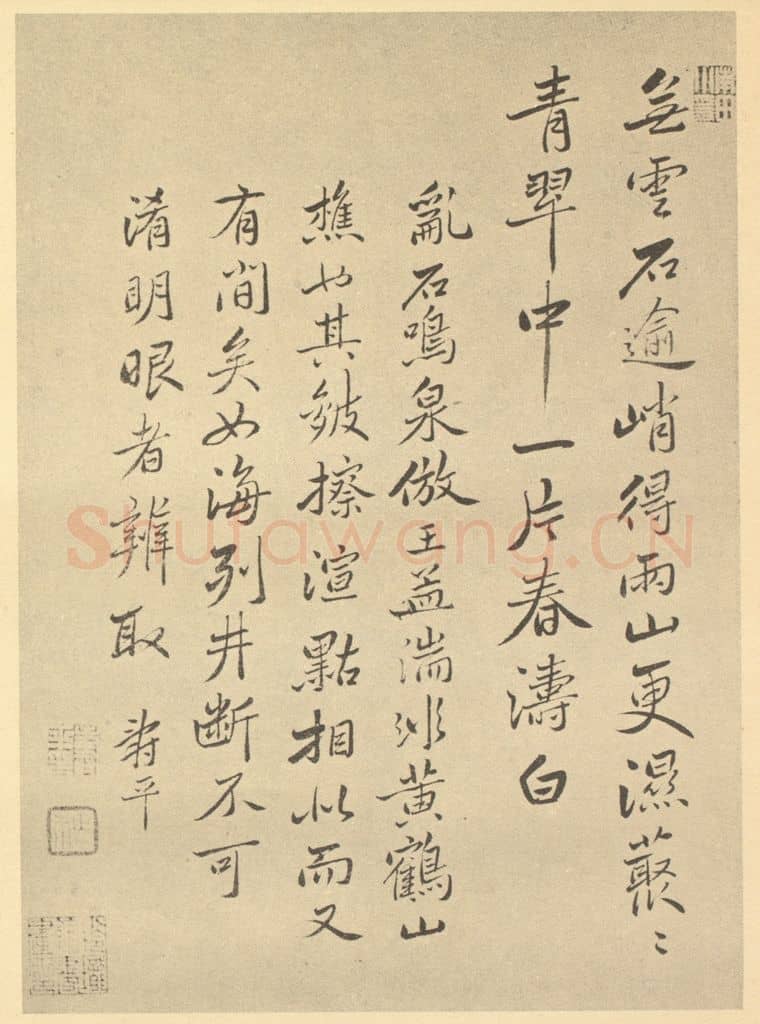 無雲石逾峭得雨山更濕藂〻
青翠中一片春濤白
亂石鳴泉倣王孟端非黃鶴山
樵也其皴擦渲點相似而又
有間矣如海列井斷不可
淆明眼者辨取 壽平
Shufawang.CN